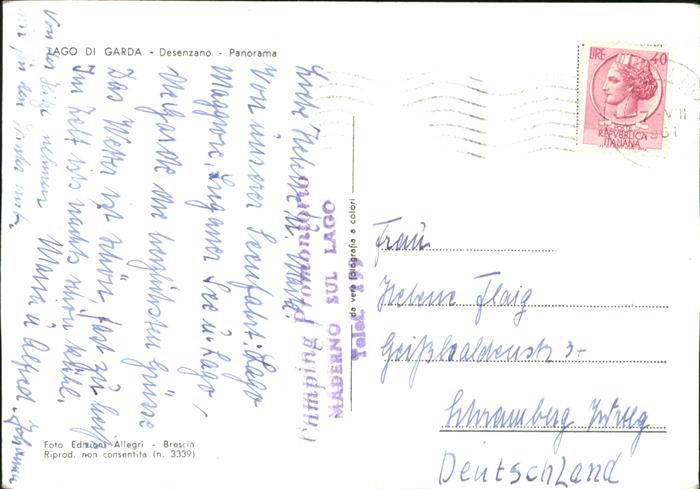 LAGO DI GARDA - Desenzano - Panorama
Liebe Helene u. Maria!
Von unserer Seenfahrt: Lago
Maggiore, Luganer See u. Lago
di Garda die herzlichsten Grüsse
Das Wetter ist schön fast zu heiß
Im Zelt ists nachts schön kühl.
Von der Hitze nehmen
wir für den Winter mit.
Maria u Alfred Johanna
Foto Edizioni Allegri - Brescia
Riprod. non consentita (n. 3339)
Camping Promontorio
MADERNO SUL LAGO
Telef.
da vera fotografia a colori
LIRE 40
POSTE
REPVBBLICA
ITALIANA
Frau
Helene Flaig
Geißhaldenstr 3-
Schramberg
Deutschland